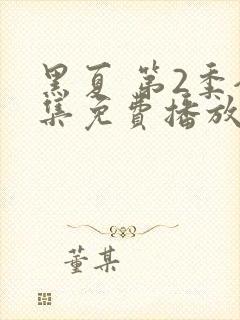 黑夏 第2季
集免费播放
董某